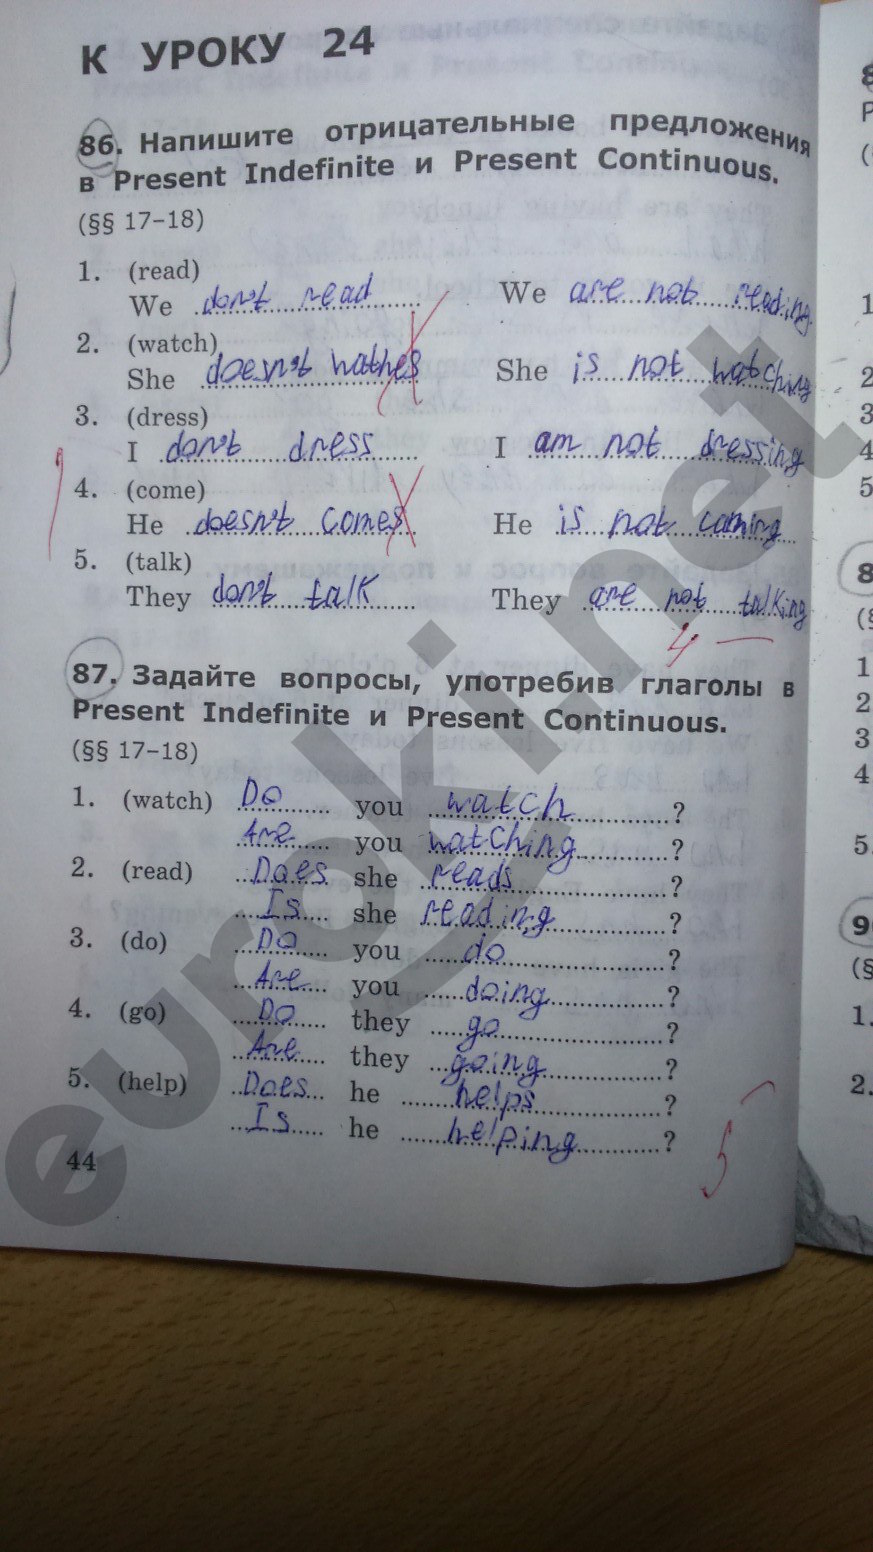 К УРОКУ 24
86. Напишите отрицательные предложения
в Present Indefinite и Present Continuous.
(§§ 17–18)
1. (read)
We don't read We are not reading
2. (watch)
She doesn't wathes She is not watching
3. (dress)
I don't dress I am not dressing
4. (come)
He doesn't comes He is not coming
5. (talk)
They don't talk They are not talking
4 –
87. Задайте вопросы, употребив глаголы в
Present Indefinite и Present Continuous.
(§§ 17–18)
1. (watch) Do you watch ?
Are you watching ?
2. (read) Does she reads ?
Is she reading ?
3. (do) Do you do ?
Are you doing ?
4. (go) Do they go ?
Are they going ?
5. (help) Does he helps ?
Is he helping ?
5
44
euroki.net
1
2
3
4
5
8
1
2
3
4
5.
9
(§
1.
2.